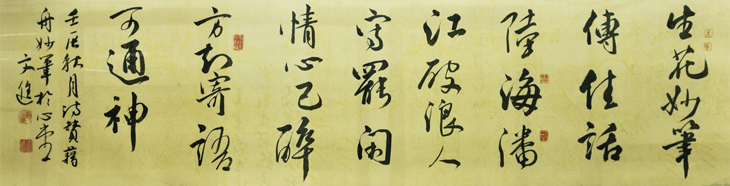 生花妙筆
傳佳話
陸海潘
江破浪人
寫罷閑
情心已醉
方知寄語
可通神
壬辰秋月詩贊
舟妙筆於心
文